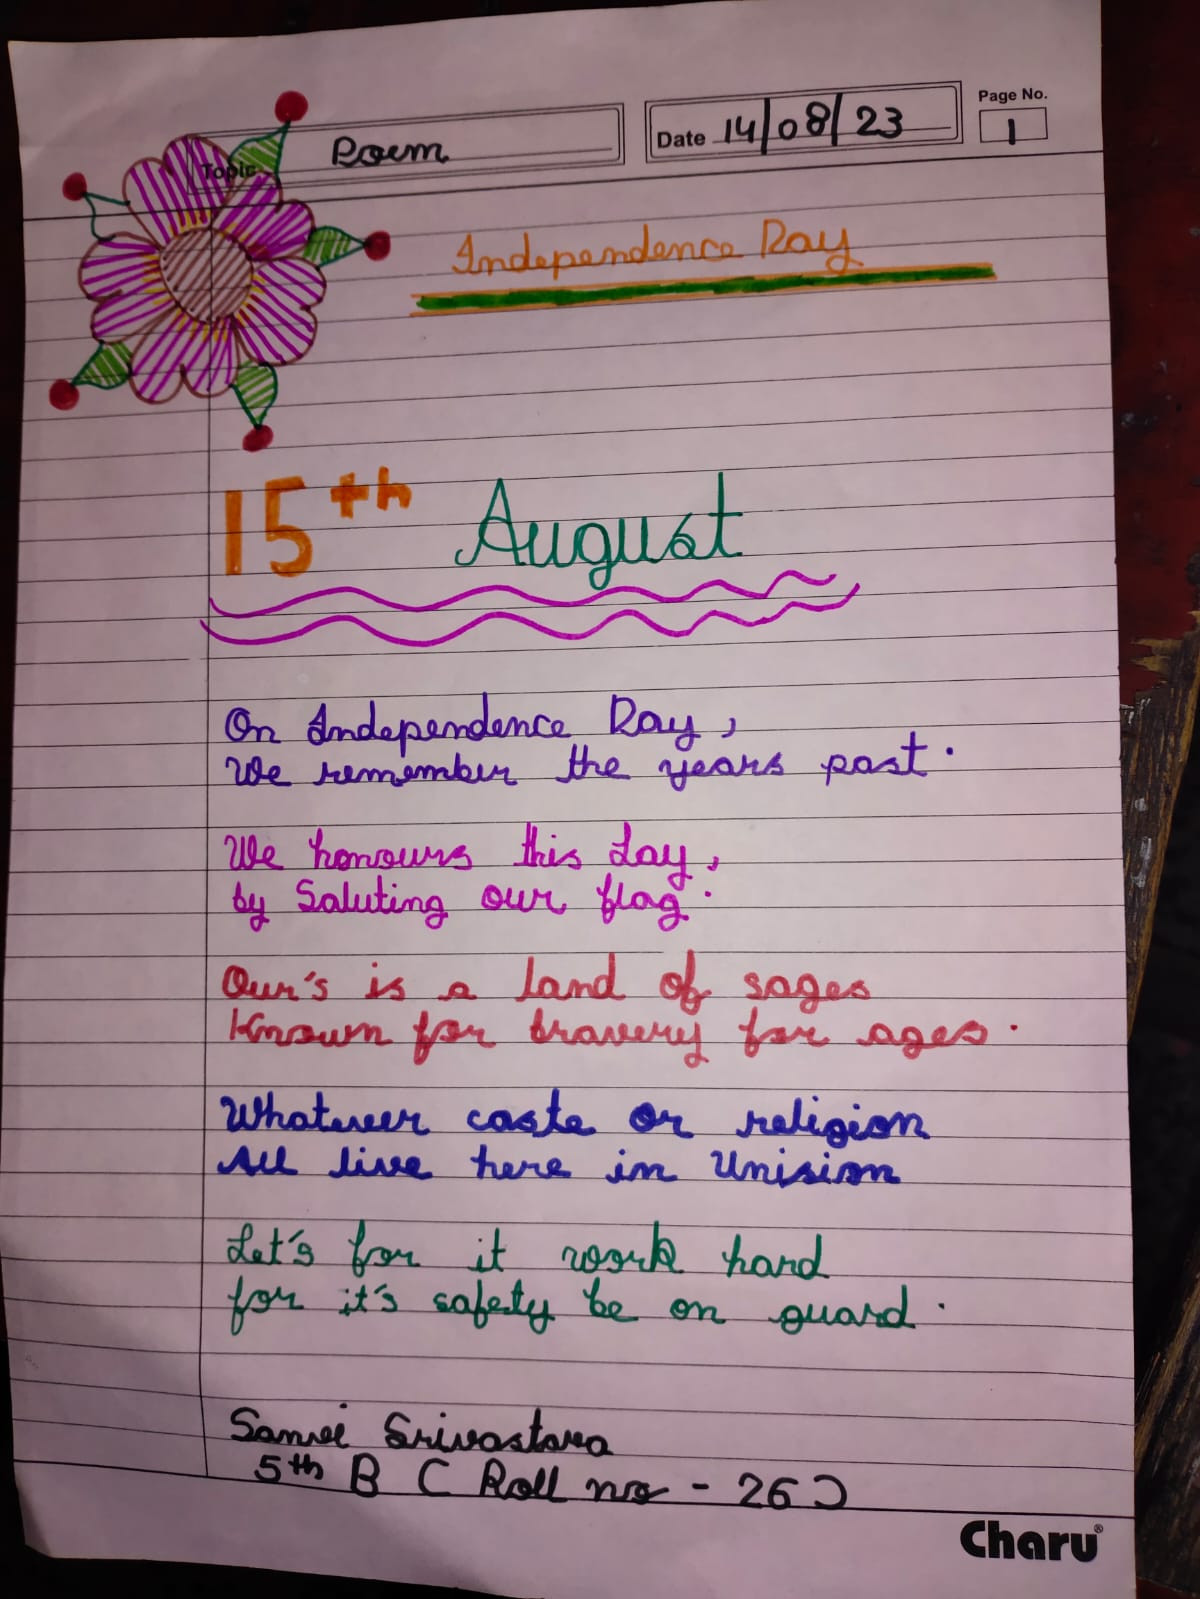 Topic Poem
Date 14/08/23
Page No.
1
Independence Day
15th August
On Independence Day,
We remember the years past.
We honours this day,
by Saluting our flag.
Our's is a land of sages
Known for bravery for ages.
Whatever caste or religion
All live here in Unision
Let's for it work hard
for it's safety be on guard.
Srivastava
5th B ( Roll no - 26 )
Charu®